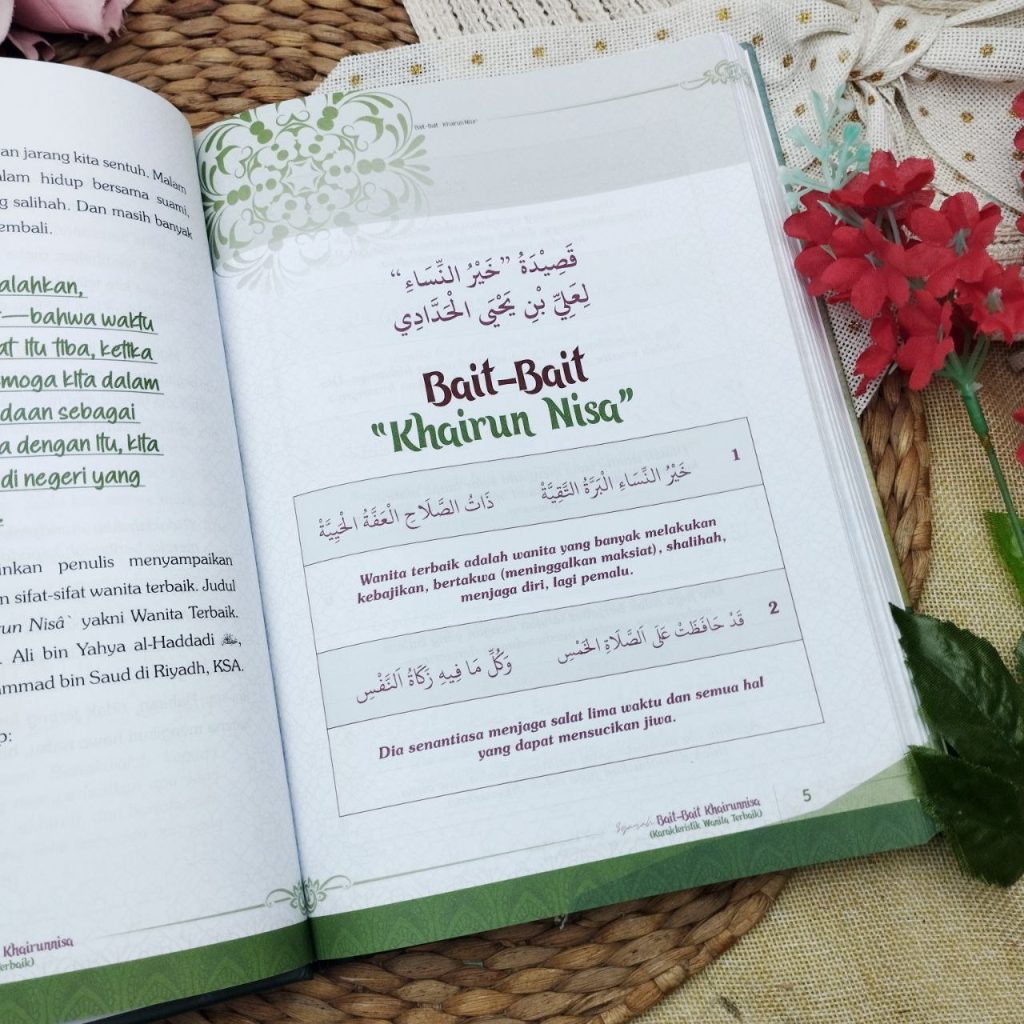 an jarang kita sentuh. Malam
lam hidup bersama suami,
g salihah. Dan masih banyak
embali.
alahkan,
—bahwa waktu
at itu tiba, ketika
moga kita dalam
daan sebagai
a dengan itu, kita
di negeri yang
inkan penulis menyampaikan
n sifat-sifat wanita terbaik. Judul
run Nisâ` yakni Wanita Terbaik.
. Ali bin Yahya al-Haddadi
ammad bin Saud di Riyadh, KSA.
p:
Khairunnisa
erbaik)
Bait-Bait "Khairun Nisa"
قَصِيْدَةُ ”خَيْرُ النِّسَاءِ“
لِعَلِيِّ بْنِ يَحْيَى الْحَدَّادِي
Bait-Bait
“Khairun Nisa”
خَيْرُ النِّسَاءِ الْبَرَّةُ التَّقِيَّةْ ذَاتُ الصَّلَاحِ الْعَفَّةُ الْحَيِيَّةْ 1
Wanita terbaik adalah wanita yang banyak melakukan
kebajikan, bertakwa (meninggalkan maksiat), shalihah,
menjaga diri, lagi pemalu.
قَدْ حَافَظَتْ عَلَى اَلصَّلَاةِ الْخَمْسِ وَكُلِّ مَا فِيهِ زَكَاةُ اَلنَّفْسِ 2
Dia senantiasa menjaga salat lima waktu dan semua hal
yang dapat mensucikan jiwa.
Syarah Bait-Bait Khairunnisa
(Karakteristik Wanita Terbaik)
5